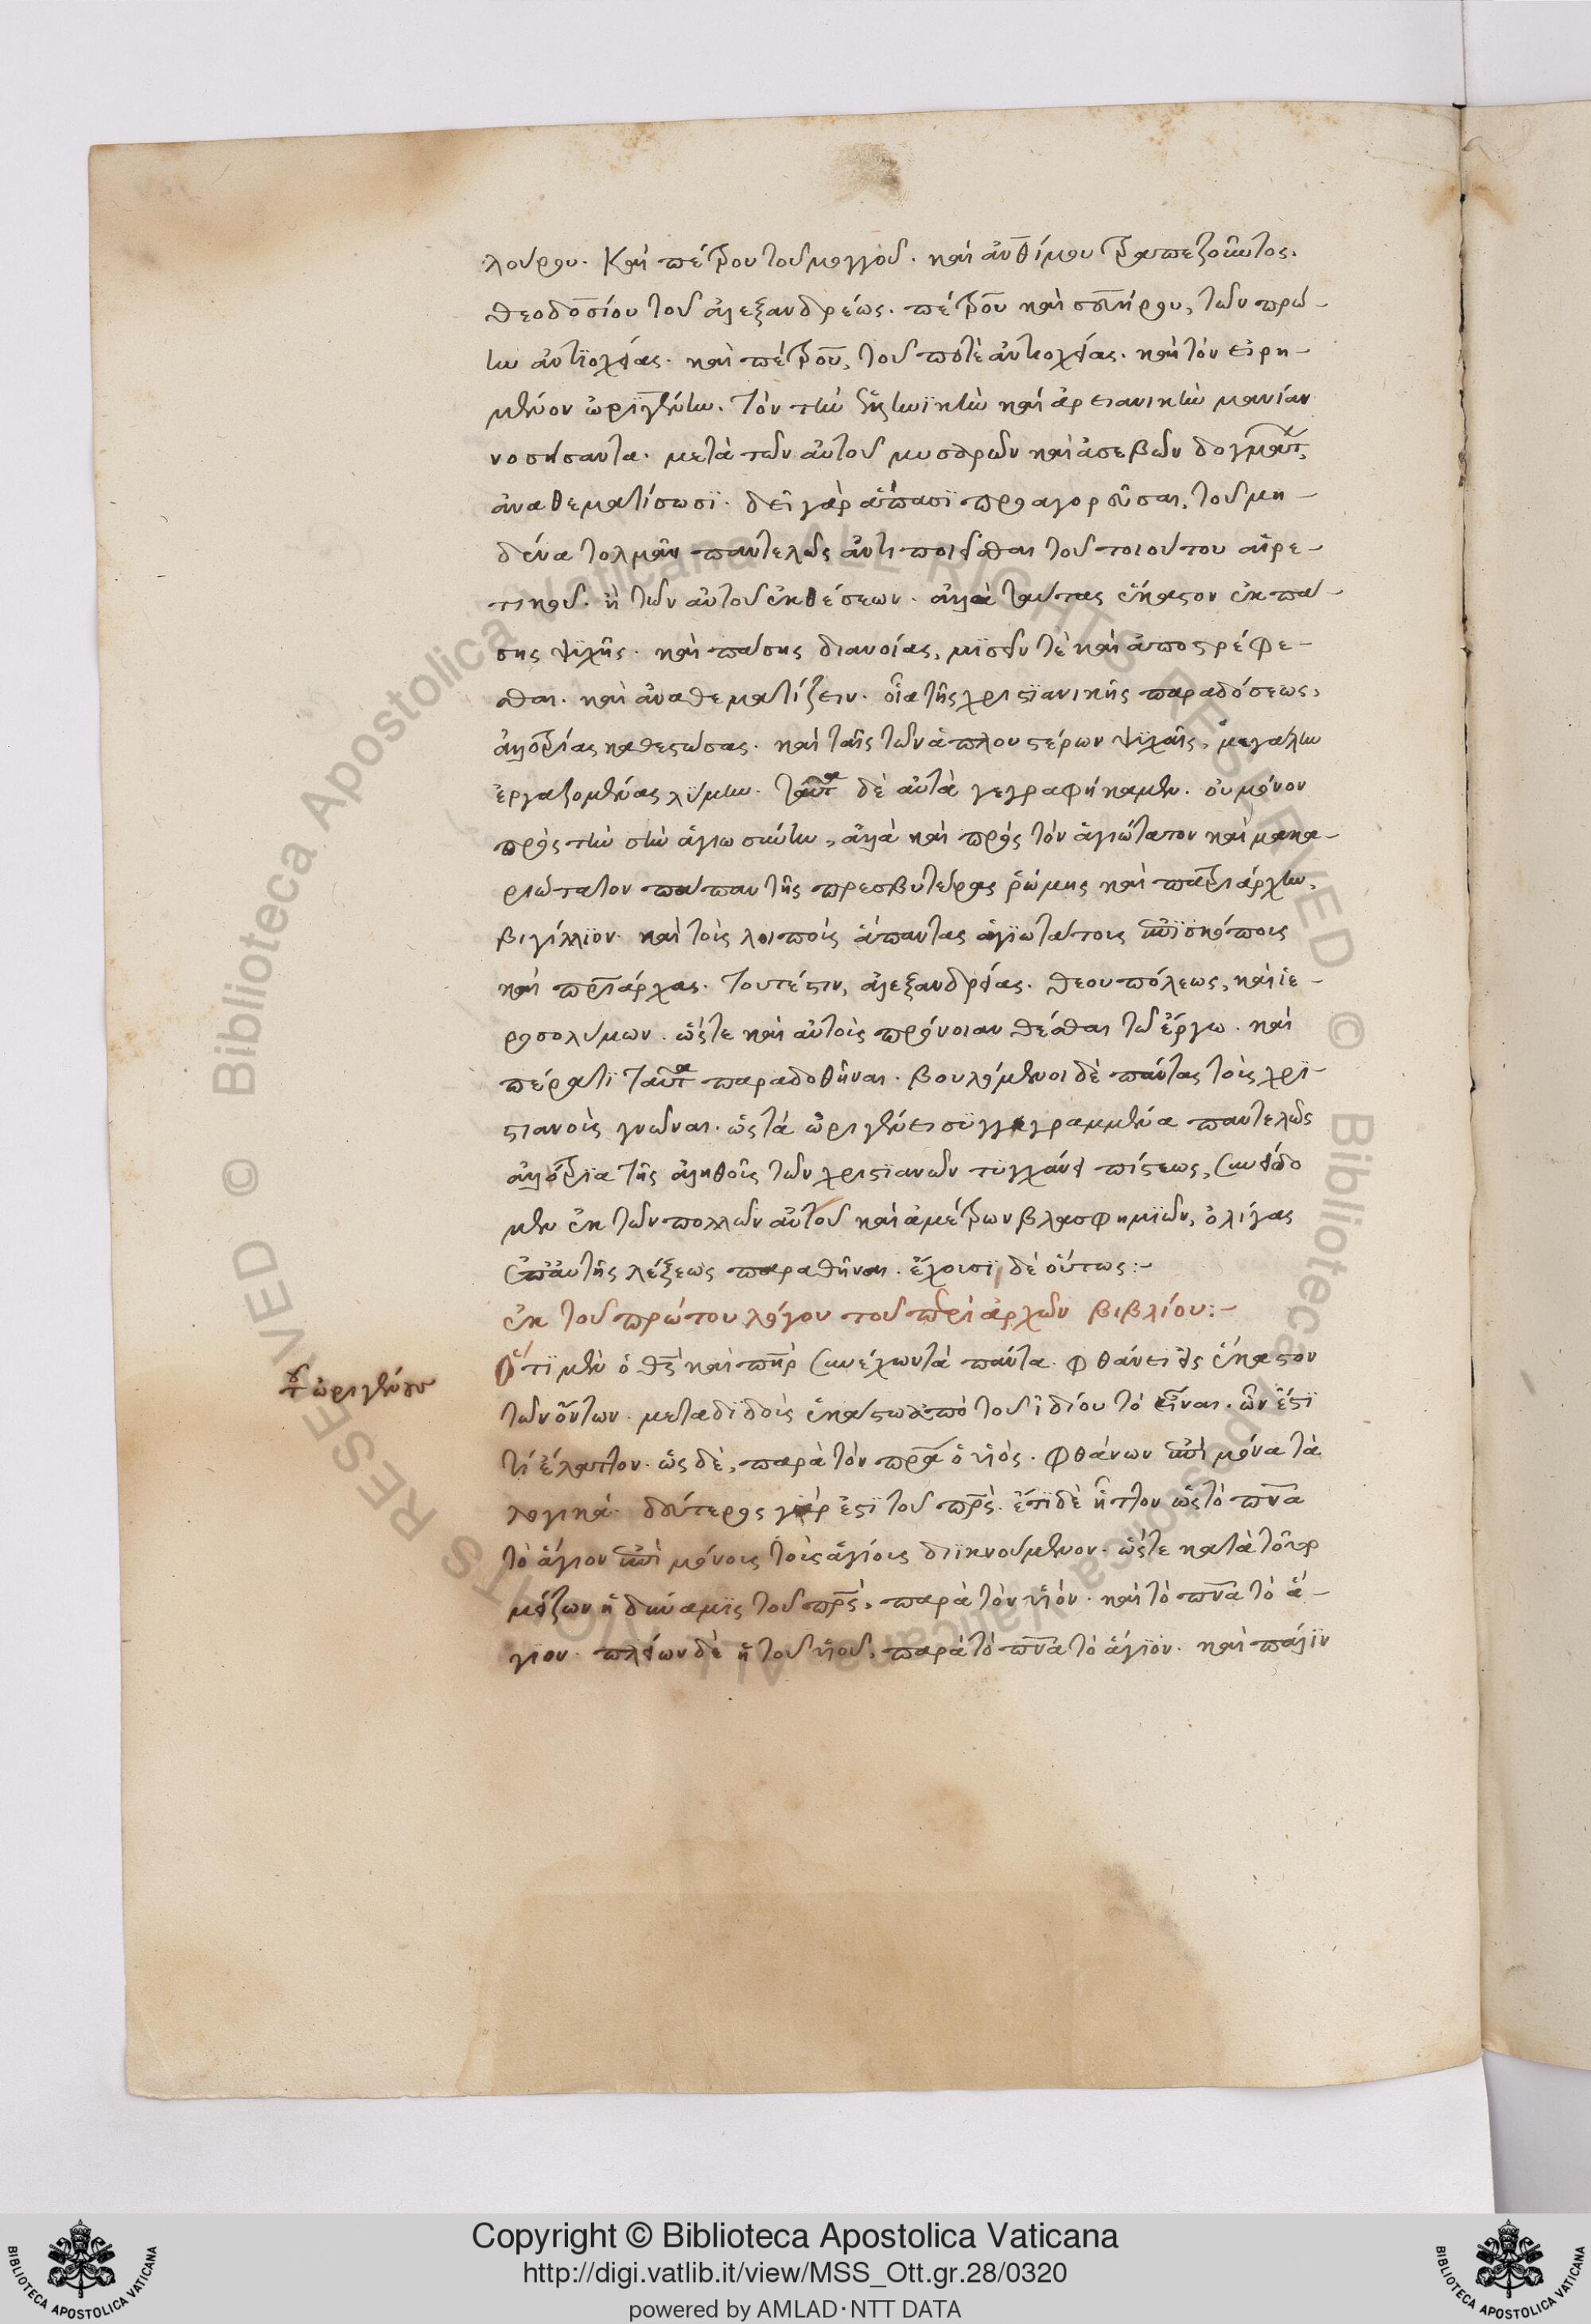 λούρου. Καὶ πέτρου τοῦ μογγοῦ. καὶ ἀνθίμου τραπεζοῦντος.
θεοδοσίου τοῦ ἀλεξανδρέως. πέτρου καὶ σευήρου, τῶν πρώ-
ην ἀντϊοχείας. καὶ πέτρου, τοῦ ποτὲ ἀντιοχείας. καὶ τὸν εἰρη-
μένον ὠριγένην. τὸν τὴν καὶ ἀρειανικὴν μανίαν
νοσήσαντα. μετὰ τῶν αὐτοῦ μυσαρῶν καὶ ἀσεβῶν δογμάτ
ἀναθεματίσωσϊ. δεῖ γὰρ ἅπασϊ προαγορεῦσαι, τοῦ μη-
δένα τολμᾶν παντελῶς ἀντιποιεῖσθαι τοῦ τοιούτου αἱρε-
τικοῦ. ἢ τῶν αὐτοῦ ἐκθέσεων. ἀλλὰ ταύτας ἕκαστον ἐκ πά-
σης ψυχῆς. καὶ πάσης διανοίας, μϊσεῖν τὲ καὶ ἀποστρέφε-
σθαι. καὶ ἀναθεματίζειν. οἷα τῆς χριστϊανικῆς παραδόσεως,
ἀλλοτρίας καθεστώσας. καὶ ταῖς τῶν ἁπλουστέρων ψϋχαῖς, μεγάλην
ἐργαζομένας λύμην. ταῦτα δὲ αὐτὰ γεγραφήκαμεν. οὐ μόνον
πρὸς τὴν σὴν ἁγιωσύνην, ἀλλὰ καὶ πρὸς τὸν ἁγιώτατον καὶ μακα-
ριώτατον πάπαν τῆς πρεσβυτέρας ῥώμης καὶ πατριάρχην,
βιγίλλϊον. καὶ τοὶς λοιποὶς ἅπαντας ἁγϊωτάτοις ἐπϊσκόποις
καὶ πριάρχας. τουτέστιν, ἀλεξανδρείας. θεουπόλεως, καὶ ἱε-
ροσολύμων. ὥστε καὶ αὐτοὶς πρόνοιαν θέσθαι τῶ ἔργω. καὶ
πέρατϊ ταῦτα παραδοθῆναι. βουλόμενοι δὲ πάντας τοὶς χρι-
στιανοὶς γνῶναι. ὡς τὰ ὠριγένει συγγεγραμμένα παντελῶς
ἀλλότρια τῆς ἀληθοῖς τῶν χριστϊανῶν τυγχάνει πίστεως, συνείδο
μεν ἐκ τῶν πολλῶν αὐτοῦ καὶ ἀμέτρων βλασφημϊῶν, ὀλίγας
ἐπ' αὐτῆς λέξεως παραθῆναι. ἔχουσϊ δὲ οὕτως:-
ἐκ τοῦ πρώτου λόγου τοῦ περὶ ἀρχῶν βιβλίου:-
τ ὠριγένους
Ὅτϊ μὲν ὁ θς καὶ πὴρ συνέχων τὰ πάντα. φθάνει εἰς ἕκαστον
τῶν ὄντων. μεταδϊδοὶς ἑκάστω ἀπὸ τοῦ ἰδίου τὸ εἶναι. ὧν ἔστϊ
τϊ ἔλαττον. ὡς δὲ, παρὰ τὸν πρα ὁ υἱός. φθάνων ἐπὶ μόνα τὰ
λογικά. δεύτερος γάρ ἐστϊ τοῦ πρς. ἔτϊ δὲ ἧττον ὡς τὸ πνα
τὸ ἅγιον ἐπὶ μόνοις τοὶς ἁγίοις διϊκνούμενον. ὥστε κατὰ τοῦτο
μείζων ἡ δύναμϊς τοῦ πρς, παρὰ τὸν υἱόν. καὶ τὸ πνα τὸ ἅ-
γιον. πλείων δὲ ἡ τοῦ υἱοῦ, παρὰ τὸ πνα τὸ ἅγϊον. καὶ πάλϊν